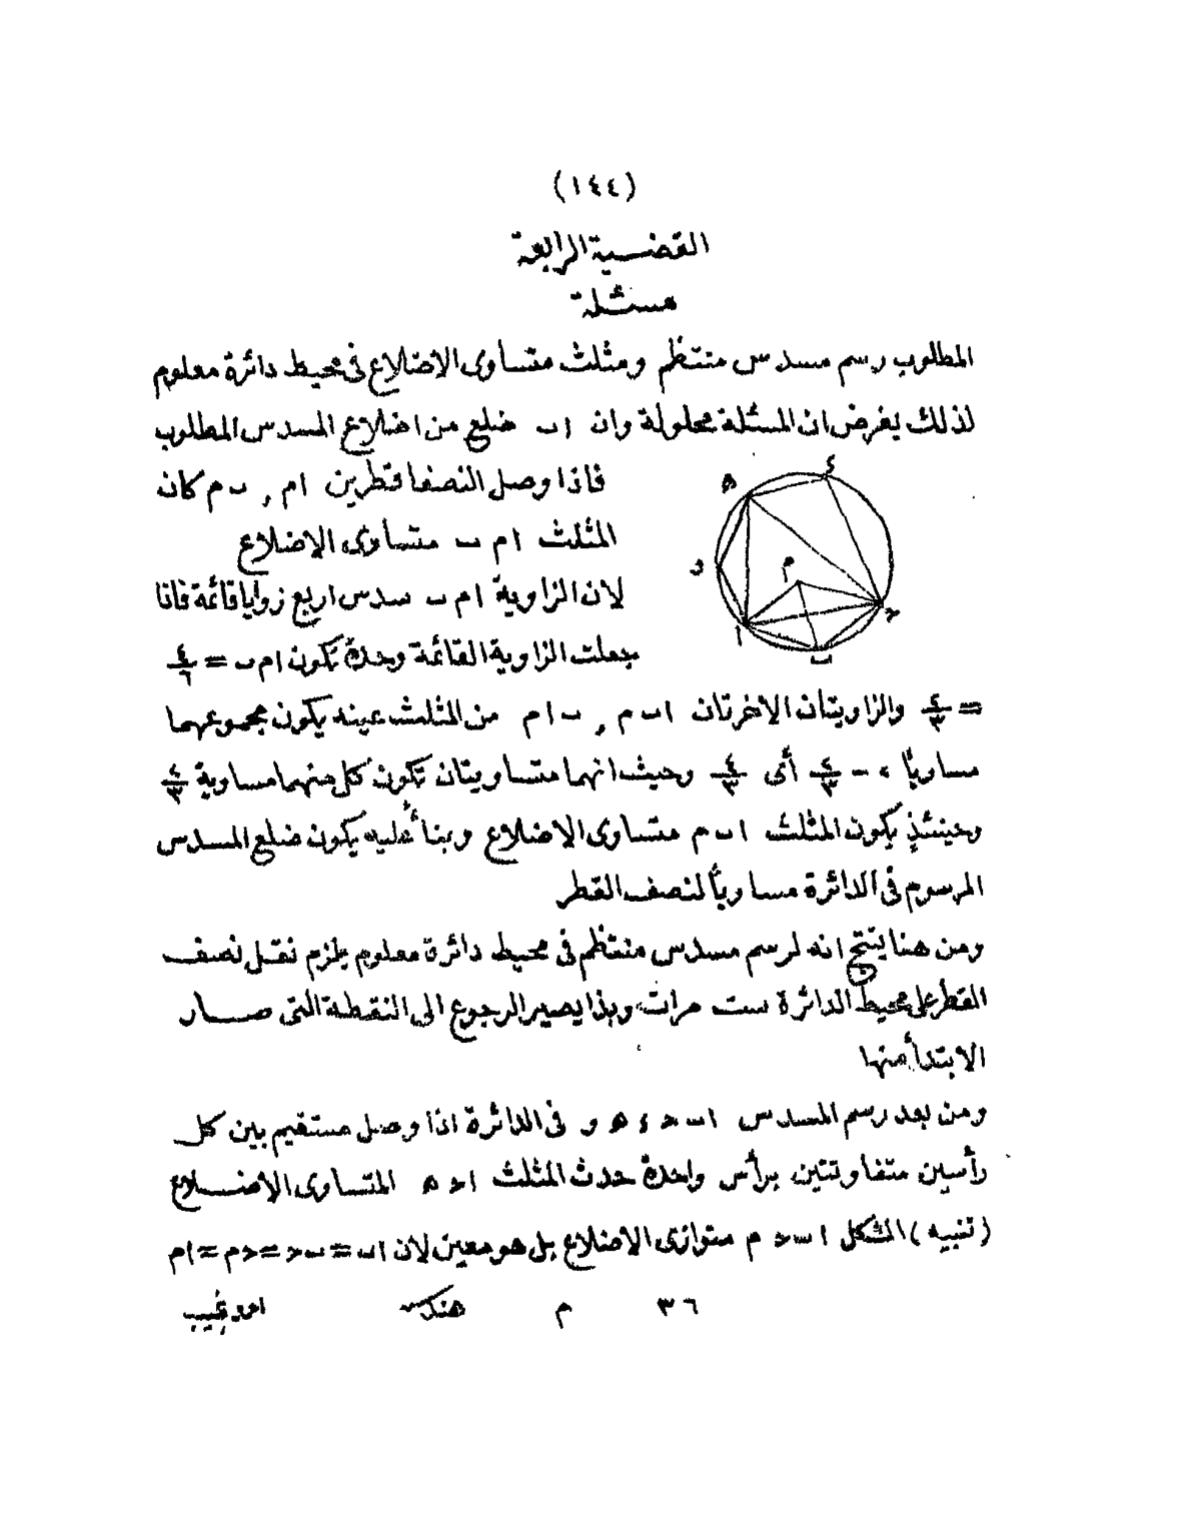 (١٤٤)
القضية الرابعة
مسئلة
المطلوب رسم مسدس منتظم ومثلث متساوى الاضلاع فى محيط دائرة معلوم
لذلك يفرض ان المسئلة محلولة وان اب ضلع من اضلاع المسدس المطلوب
فاذا وصل النصفا قطرين ام , بم كان
المثلث امب متساوى الاضلاع
لان الزاوية امب سدس اربع زوايا قائمة فاذا
جعلت الزاوية القائمة وحدة تكون امب = ٤/٦
= ٢/٣ والزاويتان الاخرتان ابم , بام من المثلث عينه يكون مجموعهما
مساويًا ٢ - ٢/٣ أى ٤/٣ وحيث انهما متساويتان تكون كل منهما مساوية ٢/٣
وحينئذٍ يكون المثلث ابم متساوى الاضلاع وبناءً عليه يكون ضلع المسدس
المرسوم فى الدائرة مساويًا لنصف القطر
ومن هنا ينتج انه لرسم مسدس منتظم فى محيط دائرة معلوم يلزم نقل نصف
القطر على محيط الدائرة ست مرات وبذا يصير الرجوع الى النقطة التى صار
الابتدأ منها
ومن بعد رسم المسدس ابحءهو فى الدائرة اذا وصل مستقيم بين كل
رأسين متفاوتتين برأس واحدة حدث المثلث احه المتساوى الاضلاع
(تنبيه) الشكل ابحم متوازى الاضلاع بل هو معين لان اب=بح=حم=ام
٣٦ م هند احمد نجيب
ء
ه
و
م
ا
ب
ح